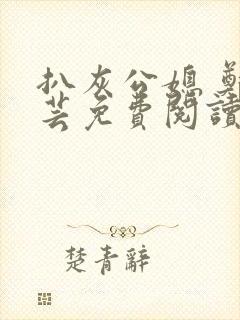 扒灰公媳 鄭
芸免費閱讀
楚青辭